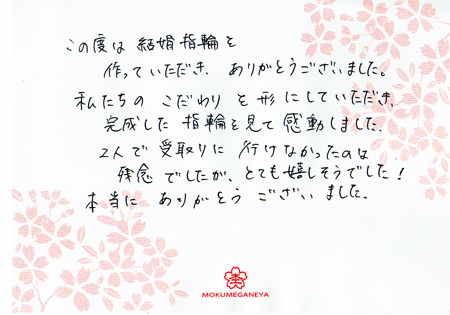 この度は 結婚指輪を
作っていただき、ありがとうございました。
私たちの こだわり を 形にしていただき、
完成した 指輪を見て 感動しました。
2人で 受取りに 行けなかったのは
残念 でしたが、とても嬉しそうでした!
本当に ありがとう ございました。
MOKUMEGANEYA